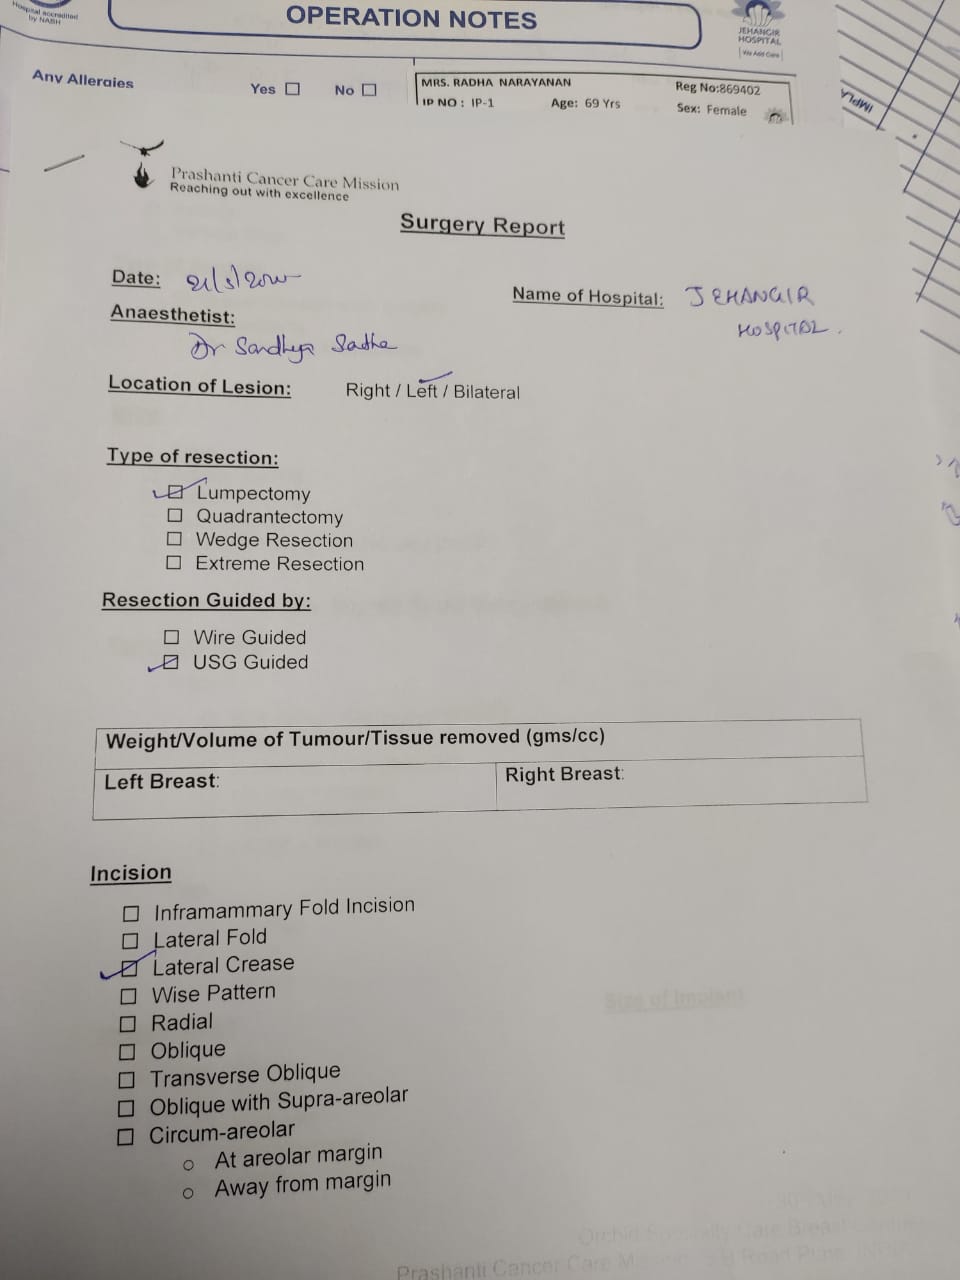 Hospital accredited
by NABH
OPERATION NOTES
JEHANGIR
HOSPITAL
We Add Care
Any Allergies Yes ☐ No ☐
MRS. RADHA NARAYANAN Reg No:869402
IP NO : IP-1 Age: 69 Yrs Sex: Female
IMPL
Prashanti Cancer Care Mission
Reaching out with excellence
Surgery Report
Date:
Name of Hospital: JEHANGIR
HOSPITAL.
Anaesthetist:
Dr Sandhya
Location of Lesion: Right / Left / Bilateral
Type of resection:
☑ Lumpectomy
☐ Quadrantectomy
☐ Wedge Resection
☐ Extreme Resection
Resection Guided by:
☐ Wire Guided
☑ USG Guided
Weight/Volume of Tumour/Tissue removed (gms/cc)
Left Breast: Right Breast:
Incision
☐ Inframammary Fold Incision
☐ Lateral Fold
☑ Lateral Crease
☐ Wise Pattern
Size of Implant
☐ Radial
☐ Oblique
☐ Transverse Oblique
☐ Oblique with Supra-areolar
☐ Circum-areolar
○ At areolar margin
○ Away from margin
Prashanti Cancer Care